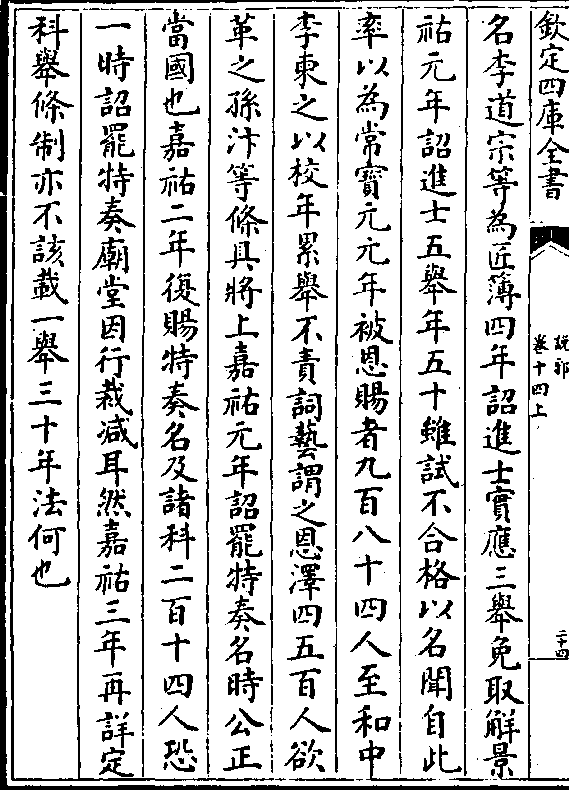 欽定四庫全書
說郛
卷十四上
二十四
名李道宗等為匠簿四年詔進士實應三舉免取解景
祐元年詔進士五舉年五十雖試不合格以名聞自此
率以為常寶元元年被恩賜者九百八十四人至和中
李東之以校年累舉不責詞藝謂之恩澤四五百人欲
革之孫汴等條具將上嘉祐元年詔罷特奏名時公正
當國也嘉祐二年復賜特奏名及諸科二百十四人恐
一時詔罷特奏廟堂因行裁減耳然嘉祐三年再詳定
科舉條制亦不該載一舉三十年法何也